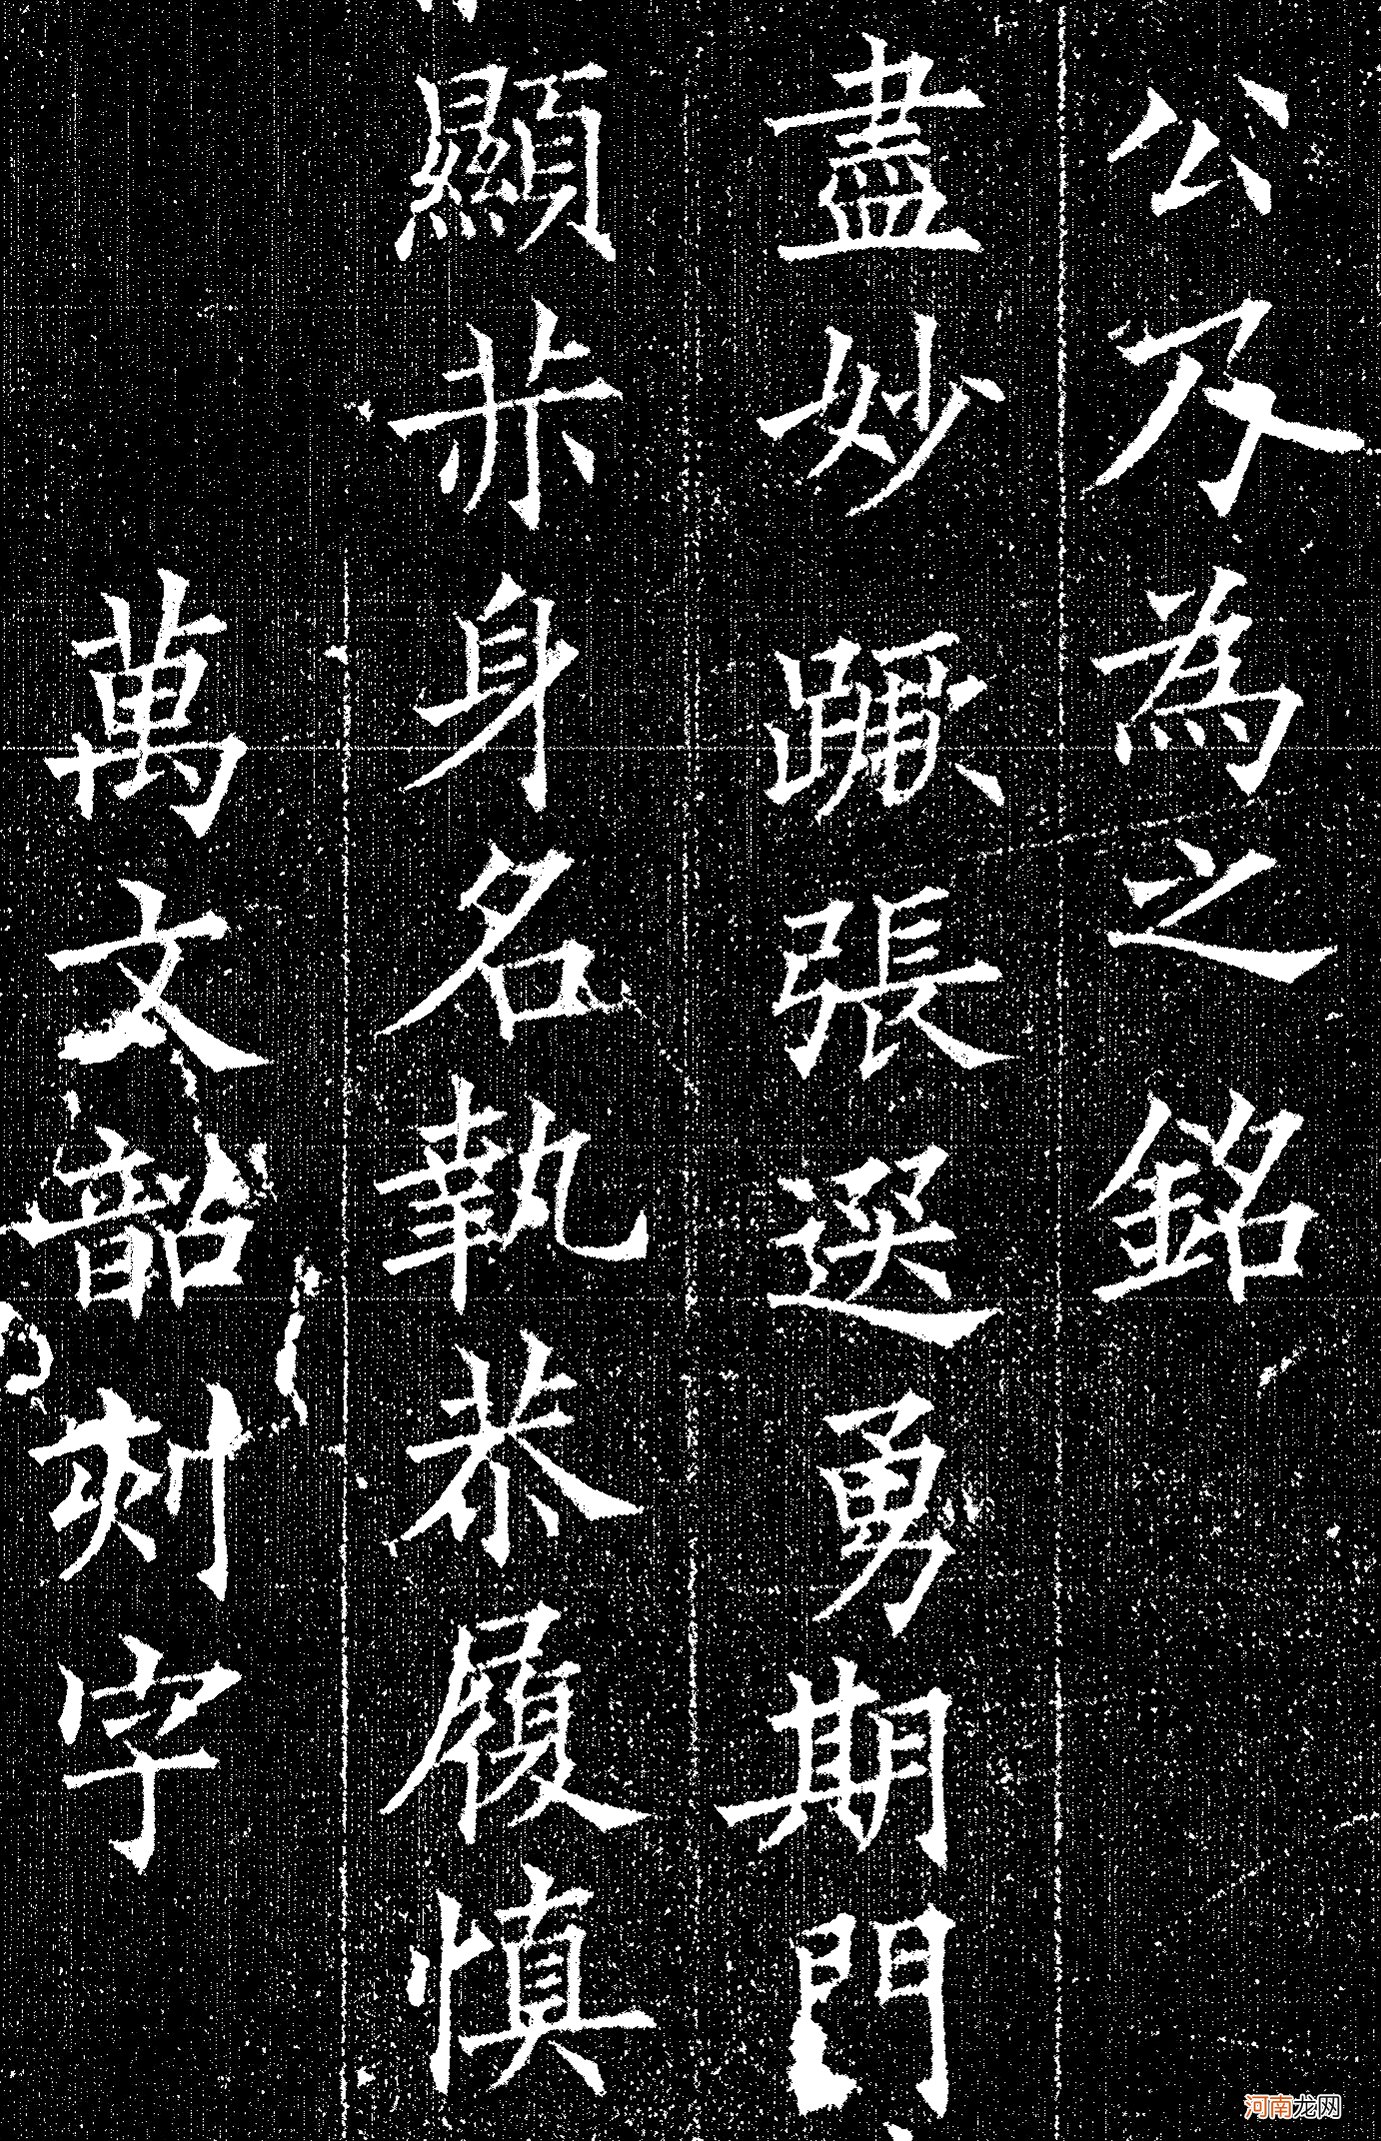 公乃為之銘
盡妙蹶張選勇期門
顯赤身名執恭履慎
萬文韶刻字
河南龙网